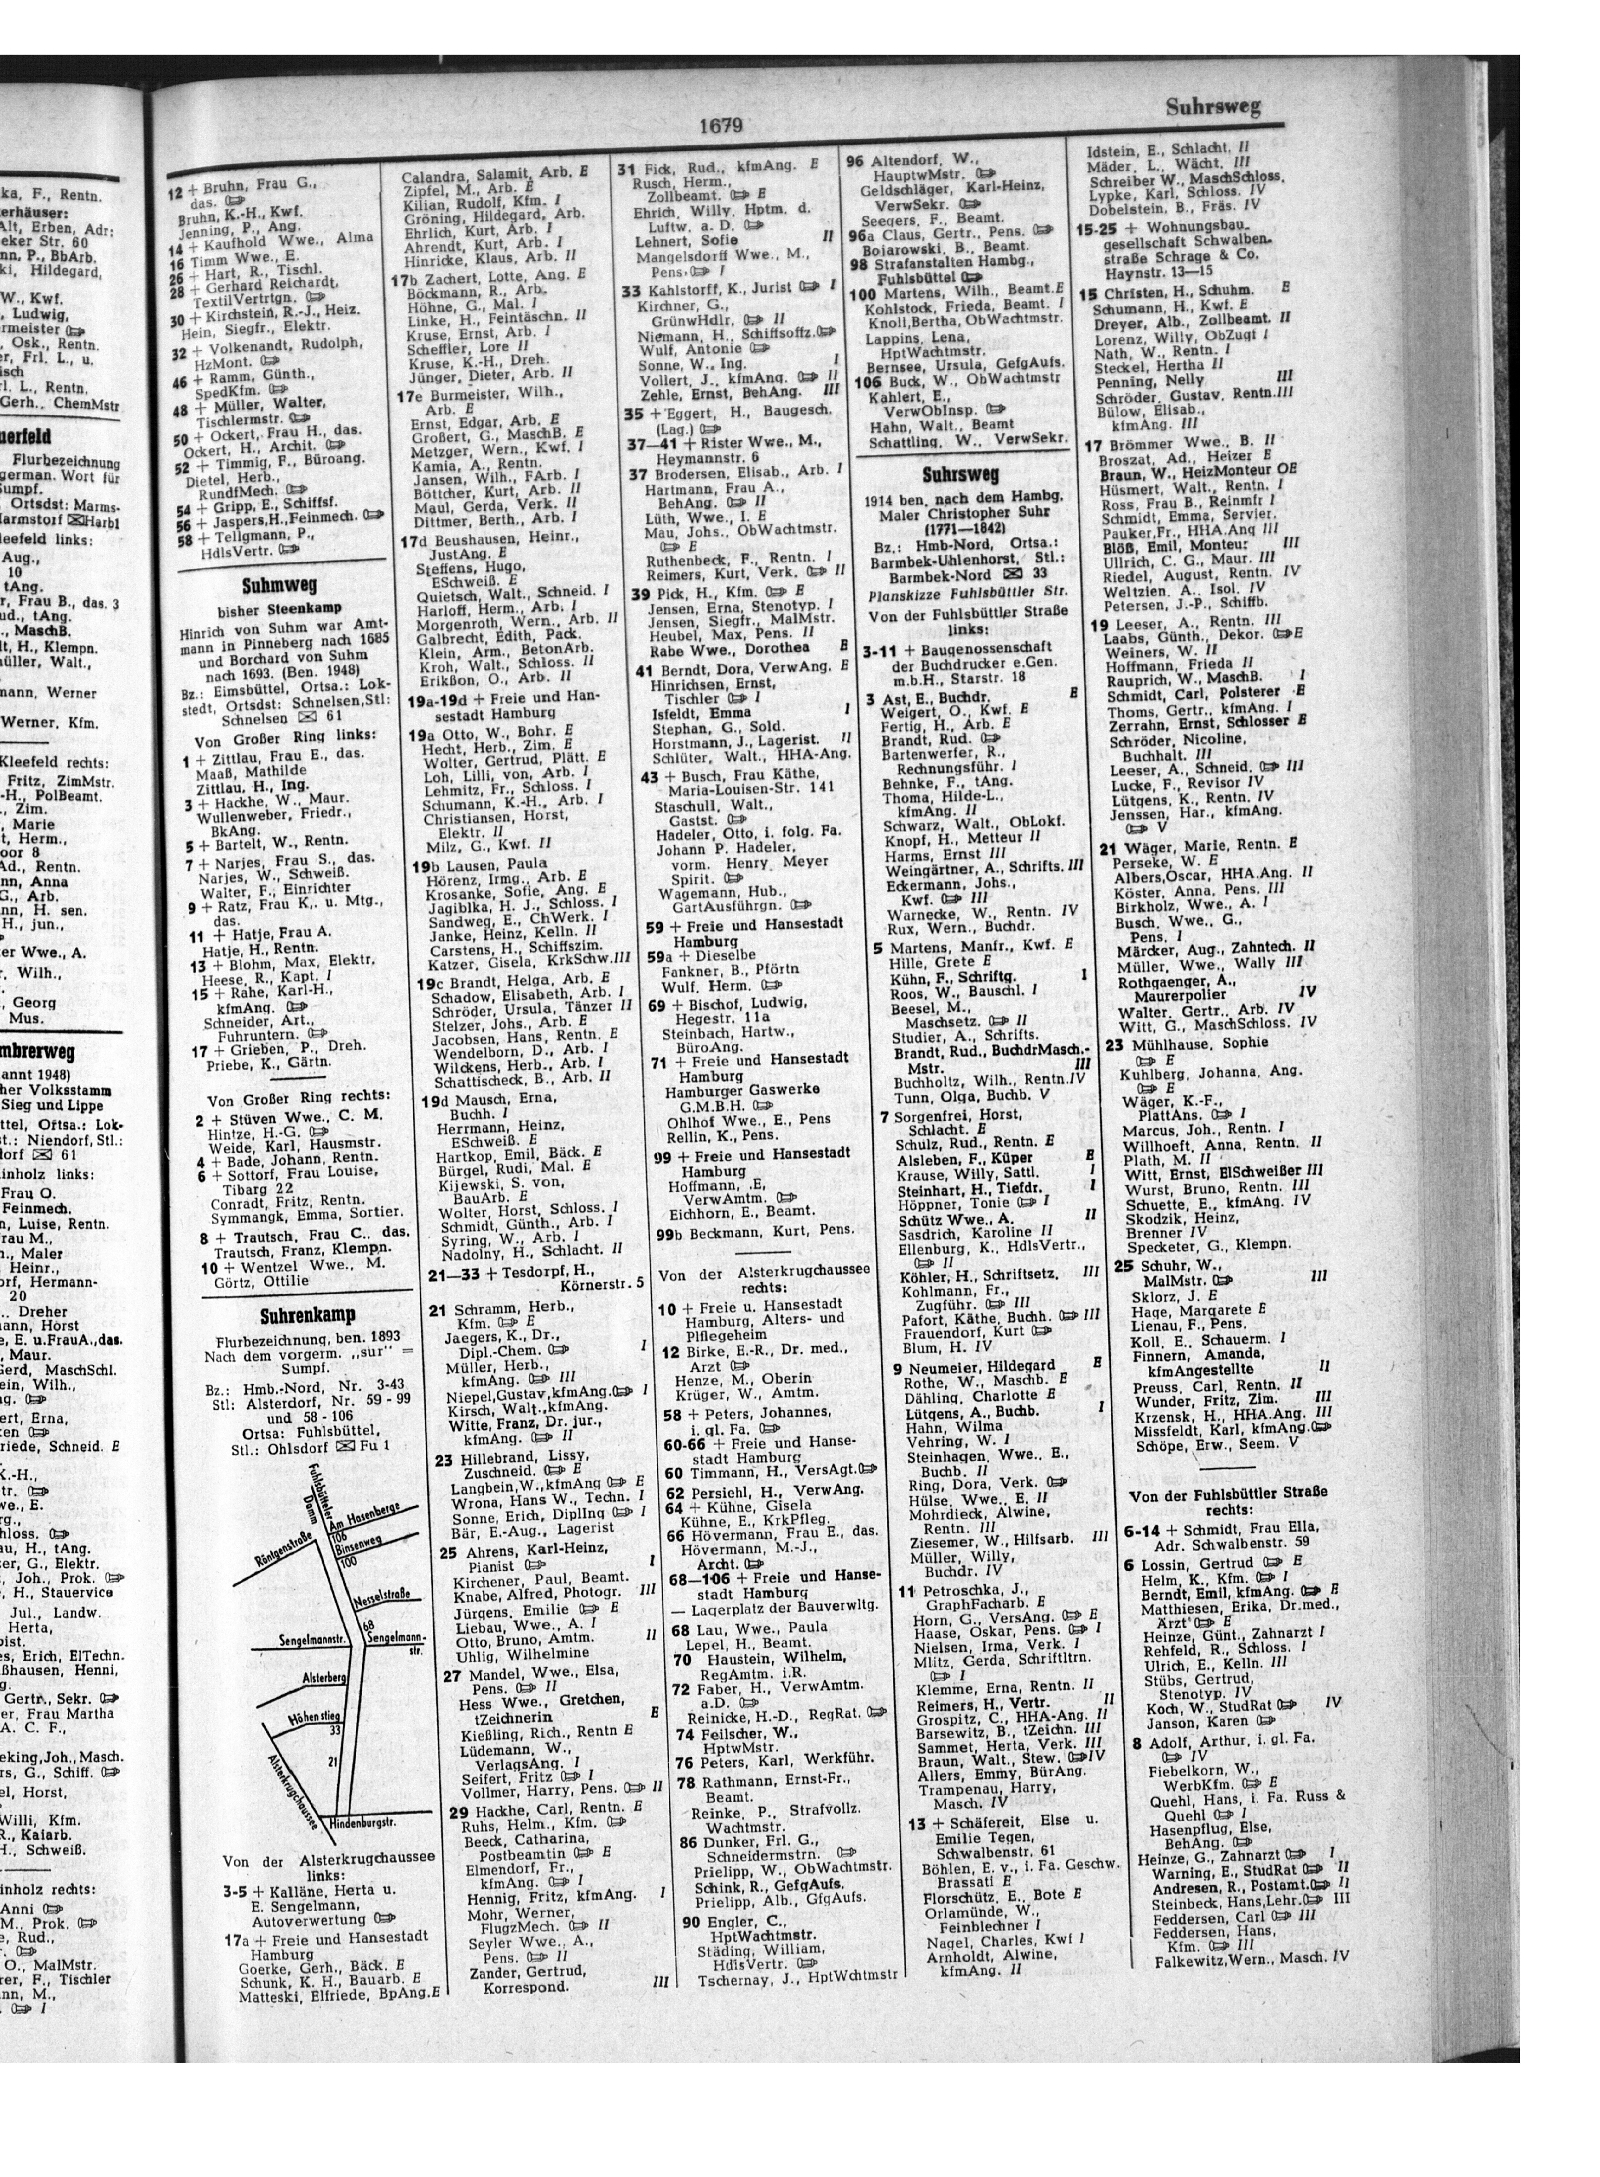 Suhrsweg
1679
ka, F., Rentn.
erhäuser:
Alt, Erben, Adr:
eker Str. 60
nn, P., BbArb.
ki, Hildegard,
W., Kwf.
, Ludwig,
ermeister
, Osk., Rentn.
er, Frl. L., u.
isch
rl. L., Rentn.
Gerh., ChemMstr
uerfeld
Flurbezeichnung
german. Wort für
Sumpf.
, Ortsdst: Marms-
Harmstorf Harb1
leefeld links:
Aug.,
10
tAng.
r, Frau B., das. 3
ud., tAng.
., MaschB.
lt, H., Klempn.
müller, Walt.,
mann, Werner
Werner, Kfm.
Kleefeld rechts:
Fritz, ZimMstr.
-H., PolBeamt.
., Zim.
, Marie
t, Herm.,
oor 8
Ad., Rentn.
nn, Anna
G., Arb.
nn, H. sen.
H., jun.,
er Wwe., A.
r. Wilh.,
, Georg
Mus.
mbrerweg
annt 1948)
her Volksstamm
Sieg und Lippe
ttel, Ortsa.: Lok-
st.: Niendorf, Stl.:
dorf 61
inholz links:
Frau O.
Feinmech.
n, Luise, Rentn.
rau M.,
n., Maler
Heinr.,
orf, Hermann-
20
., Dreher
ann, Horst
e, E. u.FrauA.,das.
, Maur.
Gerd, MaschSchl.
ein, Wilh.,
ng.
ert, Erna,
ken
riede, Schneid. E
K.-H.,
tr.
we., E.
rg.,
hloss.
au, H., tAng.
zer, G., Elektr.
, Joh., Prok.
e, H., Stauervice
Jul., Landw.
Herta,
pist.
es, Erich, ElTechn.
ßhausen, Henni,
g.
Gertr., Sekr.
er, Frau Martha
A. C. F.,
eking,Joh., Masch.
rs, G., Schiff.
el, Horst,
Willi, Kfm.
R., Kaiarb.
H., Schweiß.
inholz rechts:
Anni
M., Prok.
e, Rud.,
r.
O., MalMstr.
rer, F., Tischler
nn, M.,
I
12 + Bruhn, Frau G.,
das.
Bruhn, K.-H., Kwf.
Jenning, P., Ang.
14 + Kaufhold Wwe., Alma
16 Timm Wwe., E.
26 + Hart, R., Tischl.
28 + Gerhard Reichardt,
TextilVertrtgn.
30 + Kirchstein, R.-J., Heiz.
Hein, Siegfr., Elektr.
32 + Volkenandt, Rudolph,
HzMont.
46 + Ramm, Günth.,
SpedKfm.
48 + Müller, Walter,
Tischlermstr.
50 + Ockert, Frau H., das.
Ockert, H., Archit.
52 + Timmig, F., Büroang.
Dietel, Herb.,
RundfMech.
54 + Gripp, E., Schiffsf.
56 + Jaspers,H.,Feinmech.
58 + Tellgmann, P.,
HdlsVertr.
Suhmweg
bisher Steenkamp
Hinrich von Suhm war Amt-
mann in Pinneberg nach 1685
und Borchard von Suhm
nach 1693. (Ben. 1948)
Bz.: Eimsbüttel, Ortsa.: Lok-
stedt, Ortsdst: Schnelsen,Stl:
Schnelsen 61
Von Großer Ring links:
1 + Zittlau, Frau E., das.
Maaß, Mathilde
Zittlau, H., Ing.
3 + Hackhe, W., Maur.
Wullenweber, Friedr.,
BkAng.
5 + Bartelt, W., Rentn.
7 + Narjes, Frau S., das.
Narjes, W., Schweiß.
Walter, F., Einrichter
9 + Ratz, Frau K., u. Mtg.,
das.
11 + Hatje, Frau A.
Hatje, H., Rentn.
13 + Blohm, Max, Elektr.
Heese, R., Kapt. I
15 + Rahe, Karl-H.,
kfmAng.
Schneider, Art.,
Fuhruntern.
17 + Grieben, P., Dreh.
Priebe, K., Gärtn.
Von Großer Ring rechts:
2 + Stüven Wwe., C. M.
Hintze, H.-G.
Weide, Karl, Hausmstr.
4 + Bade, Johann, Rentn.
6 + Sottorf, Frau Louise,
Tibarg 22
Conradt, Fritz, Rentn.
Symmangk, Emma, Sortier.
8 + Trautsch, Frau C., das.
Trautsch, Franz, Klempn.
10 + Wentzel Wwe., M.
Görtz, Ottilie
Suhrenkamp
Flurbezeichnung, ben. 1893
Nach dem vorgerm. „sur" =
Sumpf.
Bz.: Hmb.-Nord, Nr. 3-43
Stl: Alsterdorf, Nr. 59 - 99
und 58 - 106
Ortsa: Fuhlsbüttel,
Stl.: Ohlsdorf Fu 1
Fuhlsbütteler
Damm
Am Hasenberge
Röntgenstraße
106
Binsenweg
100
Nesselstraße
68
Sengelmannstr.
Sengelmann-
str.
Alsterberg
Höhenstieg
33
21
Alsterkrugchaussee
Hindenburgstr.
Von der Alsterkrugchaussee
links:
3-5 + Kalläne, Herta u.
E. Sengelmann,
Autoverwertung
17a + Freie und Hansestadt
Hamburg
Goerke, Gerh., Bäck. E
Schunk, K. H., Bauarb. E
Matteski, Elfriede, BpAng.E
Calandra, Salamit, Arb. E
Zipfel, M., Arb. E
Kilian, Rudolf, Kfm. I
Gröning, Hildegard, Arb.
Ehrlich, Kurt, Arb. I
Ahrendt, Kurt, Arb. I
Hinricke, Klaus, Arb. II
17b Zachert, Lotte, Ang. E
Böckmann, R., Arb.
Höhne, G., Mal. I
Linke, H., Feintäschn. II
Kruse, Ernst, Arb. I
Scheffler, Lore II
Kruse, K.-H., Dreh.
Jünger, Dieter, Arb. II
17c Burmeister, Wilh.,
Arb. E
Ernst, Edgar, Arb. E
Großert, G., MaschB. E
Metzger, Wern., Kwf. I
Kamia, A., Rentn.
Jansen, Wilh., FArb. I
Böttcher, Kurt, Arb. II
Maul, Gerda, Verk. II
Dittmer, Berth., Arb. I
17d Beushausen, Heinr.,
JustAng. E
Steffens, Hugo,
ESchweiß. E
Quietsch, Walt., Schneid. I
Harloff, Herm., Arb. I
Morgenroth, Wern., Arb. II
Galbrecht, Edith, Pack.
Klein, Arm., BetonArb.
Kroh, Walt., Schloss. II
Erikßon, O., Arb. II
19a-19d + Freie und Han-
sestadt Hamburg
19a Otto, W., Bohr. E
Hecht, Herb., Zim. E
Wolter, Gertrud, Plätt. E
Loh, Lilli, von, Arb. I
Lehmitz, Fr., Schloss. I
Schumann, K.-H., Arb. I
Christiansen, Horst,
Elektr. II
Milz, G., Kwf. II
19b Lausen, Paula
Hörenz, Irmg., Arb. E
Krosanke, Sofie, Ang. E
Jagiblka, H. J., Schloss. I
Sandweg, E., ChWerk. I
Janke, Heinz, Kelln. II
Carstens, H., Schiffszim.
Katzer, Gisela, KrkSchw.III
19c Brandt, Helga, Arb. E
Schadow, Elisabeth, Arb. I
Schröder, Ursula, Tänzer II
Stelzer, Johs., Arb. E
Jacobsen, Hans, Rentn. E
Wendelborn, D., Arb. I
Wilckens, Herb., Arb. I
Schattischeck, B., Arb. II
19d Mausch, Erna,
Buchh. I
Herrmann, Heinz,
ESchweiß. E
Hartkop, Emil, Bäck. E
Bürgel, Rudi, Mal. E
Kijewski, S. von,
BauArb. E
Wolter, Horst, Schloss. I
Schmidt, Günth., Arb. I
Syring, W., Arb. I
Nadolny, H., Schlacht. II
21—33 + Tesdorpf, H.,
Körnerstr. 5
21 Schramm, Herb.,
Kfm. E
Jaegers, K., Dr.,
Dipl.-Chem. I
Müller, Herb.,
kfmAng. III
Niepel,Gustav,kfmAng. I
Kirsch, Walt.,kfmAng.
Witte, Franz, Dr. jur.,
kfmAng. II
23 Hillebrand, Lissy,
Zuschneid. E
Langbein,W.,kfmAng E
Wrona, Hans W., Techn. I
Sonne, Erich, DiplIng I
Bär, E.-Aug., Lagerist
25 Ahrens, Karl-Heinz,
Pianist I
Kirchener, Paul, Beamt.
Knabe, Alfred, Photogr. III
Jürgens, Emilie E
Liebau, Wwe., A. I
Otto, Bruno, Amtm. II
Uhlig, Wilhelmine
27 Mandel, Wwe., Elsa,
Pens. II
Hess Wwe., Gretchen,
tZeichnerin E
Kießling, Rich., Rentn E
Lüdemann, W.,
VerlagsAng. I
Seifert, Fritz I
Vollmer, Harry, Pens. II
29 Hackhe, Carl, Rentn. E
Ruhs, Helm., Kfm.
Beeck, Catharina,
Postbeamtin E
Elmendorf, Fr.,
kfmAng. I
Hennig, Fritz, kfmAng. I
Mohr, Werner,
FlugzMech. II
Seyler Wwe., A.,
Pens. II
Zander, Gertrud,
Korrespond. III
31 Fick, Rud., kfmAng. E
Rusch, Herm.,
Zollbeamt. E
Ehrich, Willy, Hptm. d.
Luftw. a. D.
Lehnert, Sofie II
Mangelsdorff Wwe., M.,
Pens. I
33 Kahlstorff, K., Jurist I
Kirchner, G.,
GrünwHdlr. II
Niemann, H., Schiffsoffz.
Wulf, Antonie
Sonne, W., Ing. I
Vollert, J., kfmAng. II
Zehle, Ernst, BehAng. III
35 + Eggert, H., Baugesch.
(Lag.)
37—41 + Rister Wwe., M.,
Heymannstr. 6
37 Brodersen, Elisab., Arb. I
Hartmann, Frau A.,
BehAng. II
Lüth, Wwe., I. E
Mau, Johs., ObWachtmstr.
E
Ruthenbeck, F., Rentn. I
Reimers, Kurt, Verk. II
39 Pick, H., Kfm. E
Jensen, Erna, Stenotyp. I
Jensen, Siegfr., MalMstr.
Heubel, Max, Pens. II
Rabe Wwe., Dorothea E
41 Berndt, Dora, VerwAng. E
Hinrichsen, Ernst,
Tischler I
Isfeldt, Emma I
Stephan, G., Sold.
Horstmann, J., Lagerist. II
Schlüter, Walt., HHA-Ang.
43 + Busch, Frau Käthe,
Maria-Louisen-Str. 141
Staschull, Walt.,
Gastst.
Hadeler, Otto, i. folg. Fa.
Johann P. Hadeler,
vorm. Henry Meyer
Spirit.
Wagemann, Hub.,
GartAusführgn.
59 + Freie und Hansestadt
Hamburg
59a + Dieselbe
Fankner, B., Pförtn
Wulf, Herm.
69 + Bischof, Ludwig,
Hegestr. 11a
Steinbach, Hartw.,
BüroAng.
71 + Freie und Hansestadt
Hamburg
Hamburger Gaswerke
G.M.B.H.
Ohlhof Wwe., E., Pens
Rellin, K., Pens.
99 + Freie und Hansestadt
Hamburg
Hoffmann, E,
VerwAmtm.
Eichhorn, E., Beamt.
99b Beckmann, Kurt, Pens.
Von der Alsterkrugchaussee
rechts:
10 + Freie u. Hansestadt
Hamburg, Alters- und
Pflegeheim
12 Birke, E.-R., Dr. med.,
Arzt
Henze, M., Oberin
Krüger, W., Amtm.
58 + Peters, Johannes,
i. gl. Fa.
60-66 + Freie und Hanse-
stadt Hamburg
60 Timmann, H., VersAgt.
62 Persiehl, H., VerwAng.
64 + Kühne, Gisela
Kühne, E., KrkPfleg.
66 Hövermann, Frau E., das.
Hövermann, M.-J.,
Archt.
68—106 + Freie und Hanse-
stadt Hamburg
— Lagerplatz der Bauverwltg.
68 Lau, Wwe., Paula
Lepel, H., Beamt.
70 Haustein, Wilhelm,
RegAmtm. i.R.
72 Faber, H., VerwAmtm.
a.D.
Reinicke, H.-D., RegRat.
74 Feilscher, W.,
HptwMstr.
76 Peters, Karl, Werkführ.
78 Rathmann, Ernst-Fr.,
Beamt.
Reinke, P., Strafvollz.
Wachtmstr.
86 Dunker, Frl. G.,
Schneidermstrn.
Prielipp, W., ObWachtmstr.
Schink, R., GefgAufs.
Prielipp, Alb., GfgAufs.
90 Engler, C.,
HptWachtmstr.
Städing, William,
HdlsVertr.
Tschernay, J., HptWchtmstr
96 Altendorf, W.,
HauptwMstr.
Geldschläger, Karl-Heinz,
VerwSekr.
Seegers, F., Beamt.
96a Claus, Gertr., Pens.
Bojarowski, B., Beamt.
98 Strafanstalten Hambg.,
Fuhlsbüttel
100 Martens, Wilh., Beamt.E
Kohlstock, Frieda, Beamt. I
Knoll,Bertha, ObWachtmstr.
Lappins, Lena,
HptWachtmstr.
Bernsee, Ursula, GefgAufs.
106 Buck, W., ObWachtmstr
Kahlert, E.,
VerwObInsp.
Hahn, Walt., Beamt
Schattling, W., VerwSekr.
Suhrsweg
1914 ben. nach dem Hambg.
Maler Christopher Suhr
(1771—1842)
Bz.: Hmb-Nord, Ortsa.:
Barmbek-Uhlenhorst, Stl.:
Barmbek-Nord 33
Planskizze Fuhlsbüttler Str.
Von der Fuhlsbüttler Straße
links:
3-11 + Baugenossenschaft
der Buchdrucker e.Gen.
m.b.H., Starstr. 18
3 Ast, E., Buchdr. E
Weigert, O., Kwf. E
Fertig, H., Arb. E
Brandt, Rud.
Bartenwerfer, R.,
Rechnungsführ. I
Behnke, F., tAng.
Thoma, Hilde-L.,
kfmAng. II
Schwarz, Walt., ObLokf.
Knopf, H., Metteur II
Harms, Ernst III
Weingärtner, A., Schrifts. III
Eckermann, Johs.,
Kwf. III
Warnecke, W., Rentn. IV
Rux, Wern., Buchdr.
5 Martens, Manfr., Kwf. E
Hille, Grete E
Kühn, F., Schriftg. I
Roos, W., Bauschl. I
Beesel, M.,
Maschsetz. II
Studier, A., Schrifts.
Brandt, Rud., BuchdrMasch.-
Mstr. III
Buchholtz, Wilh., Rentn.IV
Tunn, Olga, Buchb. V
7 Sorgenfrei, Horst,
Schlacht. E
Schulz, Rud., Rentn. E
Alsleben, F., Küper E
Krause, Willy, Sattl. I
Steinhart, H., Tiefdr. I
Höppner, Tonie I
Schütz Wwe., A. II
Sasdrich, Karoline II
Ellenburg, K., HdlsVertr.,
II
Köhler, H., Schriftsetz. III
Kohlmann, Fr.,
Zugführ. III
Pafort, Käthe, Buchh. III
Frauendorf, Kurt
Blum, H. IV
9 Neumeier, Hildegard E
Rothe, W., Maschb. E
Dähling, Charlotte E
Lütgens, A., Buchb. I
Hahn, Wilma
Vehring, W. I
Steinhagen, Wwe., E.,
Buchb. II
Ring, Dora, Verk.
Hülse, Wwe., E. II
Mohrdieck, Alwine,
Rentn. III
Ziesemer, W., Hilfsarb. III
Müller, Willy,
Buchdr. IV
11 Petroschka, J.,
GraphFacharb. E
Horn, G., VersAng. E
Haase, Oskar, Pens. I
Nielsen, Irma, Verk. I
Mlitz, Gerda, Schriftltrn.
I
Klemme, Erna, Rentn. II
Reimers, H., Vertr. II
Grospitz, C., HHA-Ang. II
Barsewitz, B., tZeichn. III
Sammet, Herta, Verk. III
Braun, Walt., Stew. IV
Allers, Emmy, BürAng.
Trampenau, Harry,
Masch. IV
13 + Schäfereit, Else u.
Emilie Tegen,
Schwalbenstr. 61
Böhlen, E. v., i. Fa. Geschw.
Brassati E
Florschütz, E., Bote E
Orlamünde, W.,
Feinblechner I
Nagel, Charles, Kwf I
Arnholdt, Alwine,
kfmAng. II
Idstein, E., Schlacht. II
Mäder, L., Wächt. III
Schreiber W., MaschSchloss.
Lypke, Karl, Schloss. IV
Dobelstein, B., Fräs. IV
15-25 + Wohnungsbau-
gesellschaft Schwalben-
straße Schrage & Co.
Haynstr. 13—15
15 Christen, H., Schuhm. E
Schumann, H., Kwf. E
Dreyer, Alb., Zollbeamt. II
Lorenz, Willy, ObZugf I
Nath, W., Rentn. I
Steckel, Hertha II
Penning, Nelly III
Schröder, Gustav, Rentn.III
Bülow, Elisab.,
kfmAng. III
17 Brömmer Wwe., B. II
Broszat, Ad., Heizer E
Braun, W., HeizMonteur OE
Hüsmert, Walt., Rentn. I
Ross, Frau B., Reinmfr I
Schmidt, Emma, Servier.
Pauker,Fr., HHA.Ang III
Blöß, Emil, Monteur III
Ullrich, C. G., Maur. III
Riedel, August, Rentn. IV
Weltzien, A., Isol. IV
Petersen, J.-P., Schiffb.
19 Leeser, A., Rentn. III
Laabs, Günth., Dekor. E
Weiners, W. II
Hoffmann, Frieda II
Rauprich, W., MaschB. I
Schmidt, Carl, Polsterer E
Thoms, Gertr., kfmAng. I
Zerrahn, Ernst, Schlosser E
Schröder, Nicoline,
Buchhalt. III
Leeser, A., Schneid. III
Lucke, F., Revisor IV
Lütgens, K., Rentn. IV
Jenssen, Har., kfmAng.
V
21 Wäger, Marie, Rentn. E
Perseke, W. E
Albers,Oscar, HHA.Ang. II
Köster, Anna, Pens. III
Birkholz, Wwe., A. I
Busch, Wwe., G.,
Pens. I
Märcker, Aug., Zahntech. II
Müller, Wwe., Wally III
Rothgaenger, A.,
Maurerpolier IV
Walter, Gertr., Arb. IV
Witt, G., MaschSchloss. IV
23 Mühlhause, Sophie
E
Kuhlberg, Johanna, Ang.
E
Wäger, K.-F.,
PlattAns. I
Marcus, Joh., Rentn. I
Willhoeft, Anna, Rentn. II
Plath, M. II
Witt, Ernst, ElSchweißer III
Wurst, Bruno, Rentn. III
Schuette, E., kfmAng. IV
Skodzik, Heinz,
Brenner IV
Specketer, G., Klempn.
25 Schuhr, W.,
MalMstr. III
Sklorz, J. E
Hage, Margarete E
Lienau, F., Pens.
Koll, E., Schauerm. I
Finnern, Amanda,
kfmAngestellte II
Preuss, Carl, Rentn. II
Wunder, Fritz, Zim. III
Krzensk, H., HHA.Ang. III
Missfeldt, Karl, kfmAng.
Schöpe, Erw., Seem. V
Von der Fuhlsbüttler Straße
rechts:
6-14 + Schmidt, Frau Ella,
Adr. Schwalbenstr. 59
6 Lossin, Gertrud E
Helm, K., Kfm. I
Berndt, Emil, kfmAng. E
Matthiesen, Erika, Dr.med.,
Ärzt E
Heinze, Günt., Zahnarzt I
Rehfeld, R., Schloss. I
Ulrich, E., Kelln. III
Stübs, Gertrud,
Stenotyp. IV
Koch, W., StudRat IV
Janson, Karen
8 Adolf, Arthur, i. gl. Fa.
IV
Fiebelkorn, W.,
WerbKfm. E
Quehl, Hans, i. Fa. Russ &
Quehl I
Hasenpflug, Else,
BehAng.
Heinze, G., Zahnarzt I
Warning, E., StudRat II
Andresen, R., Postamt. II
Steinbeck, Hans,Lehr. III
Feddersen, Carl III
Feddersen, Hans,
Kfm. III
Falkewitz,Wern., Masch. IV